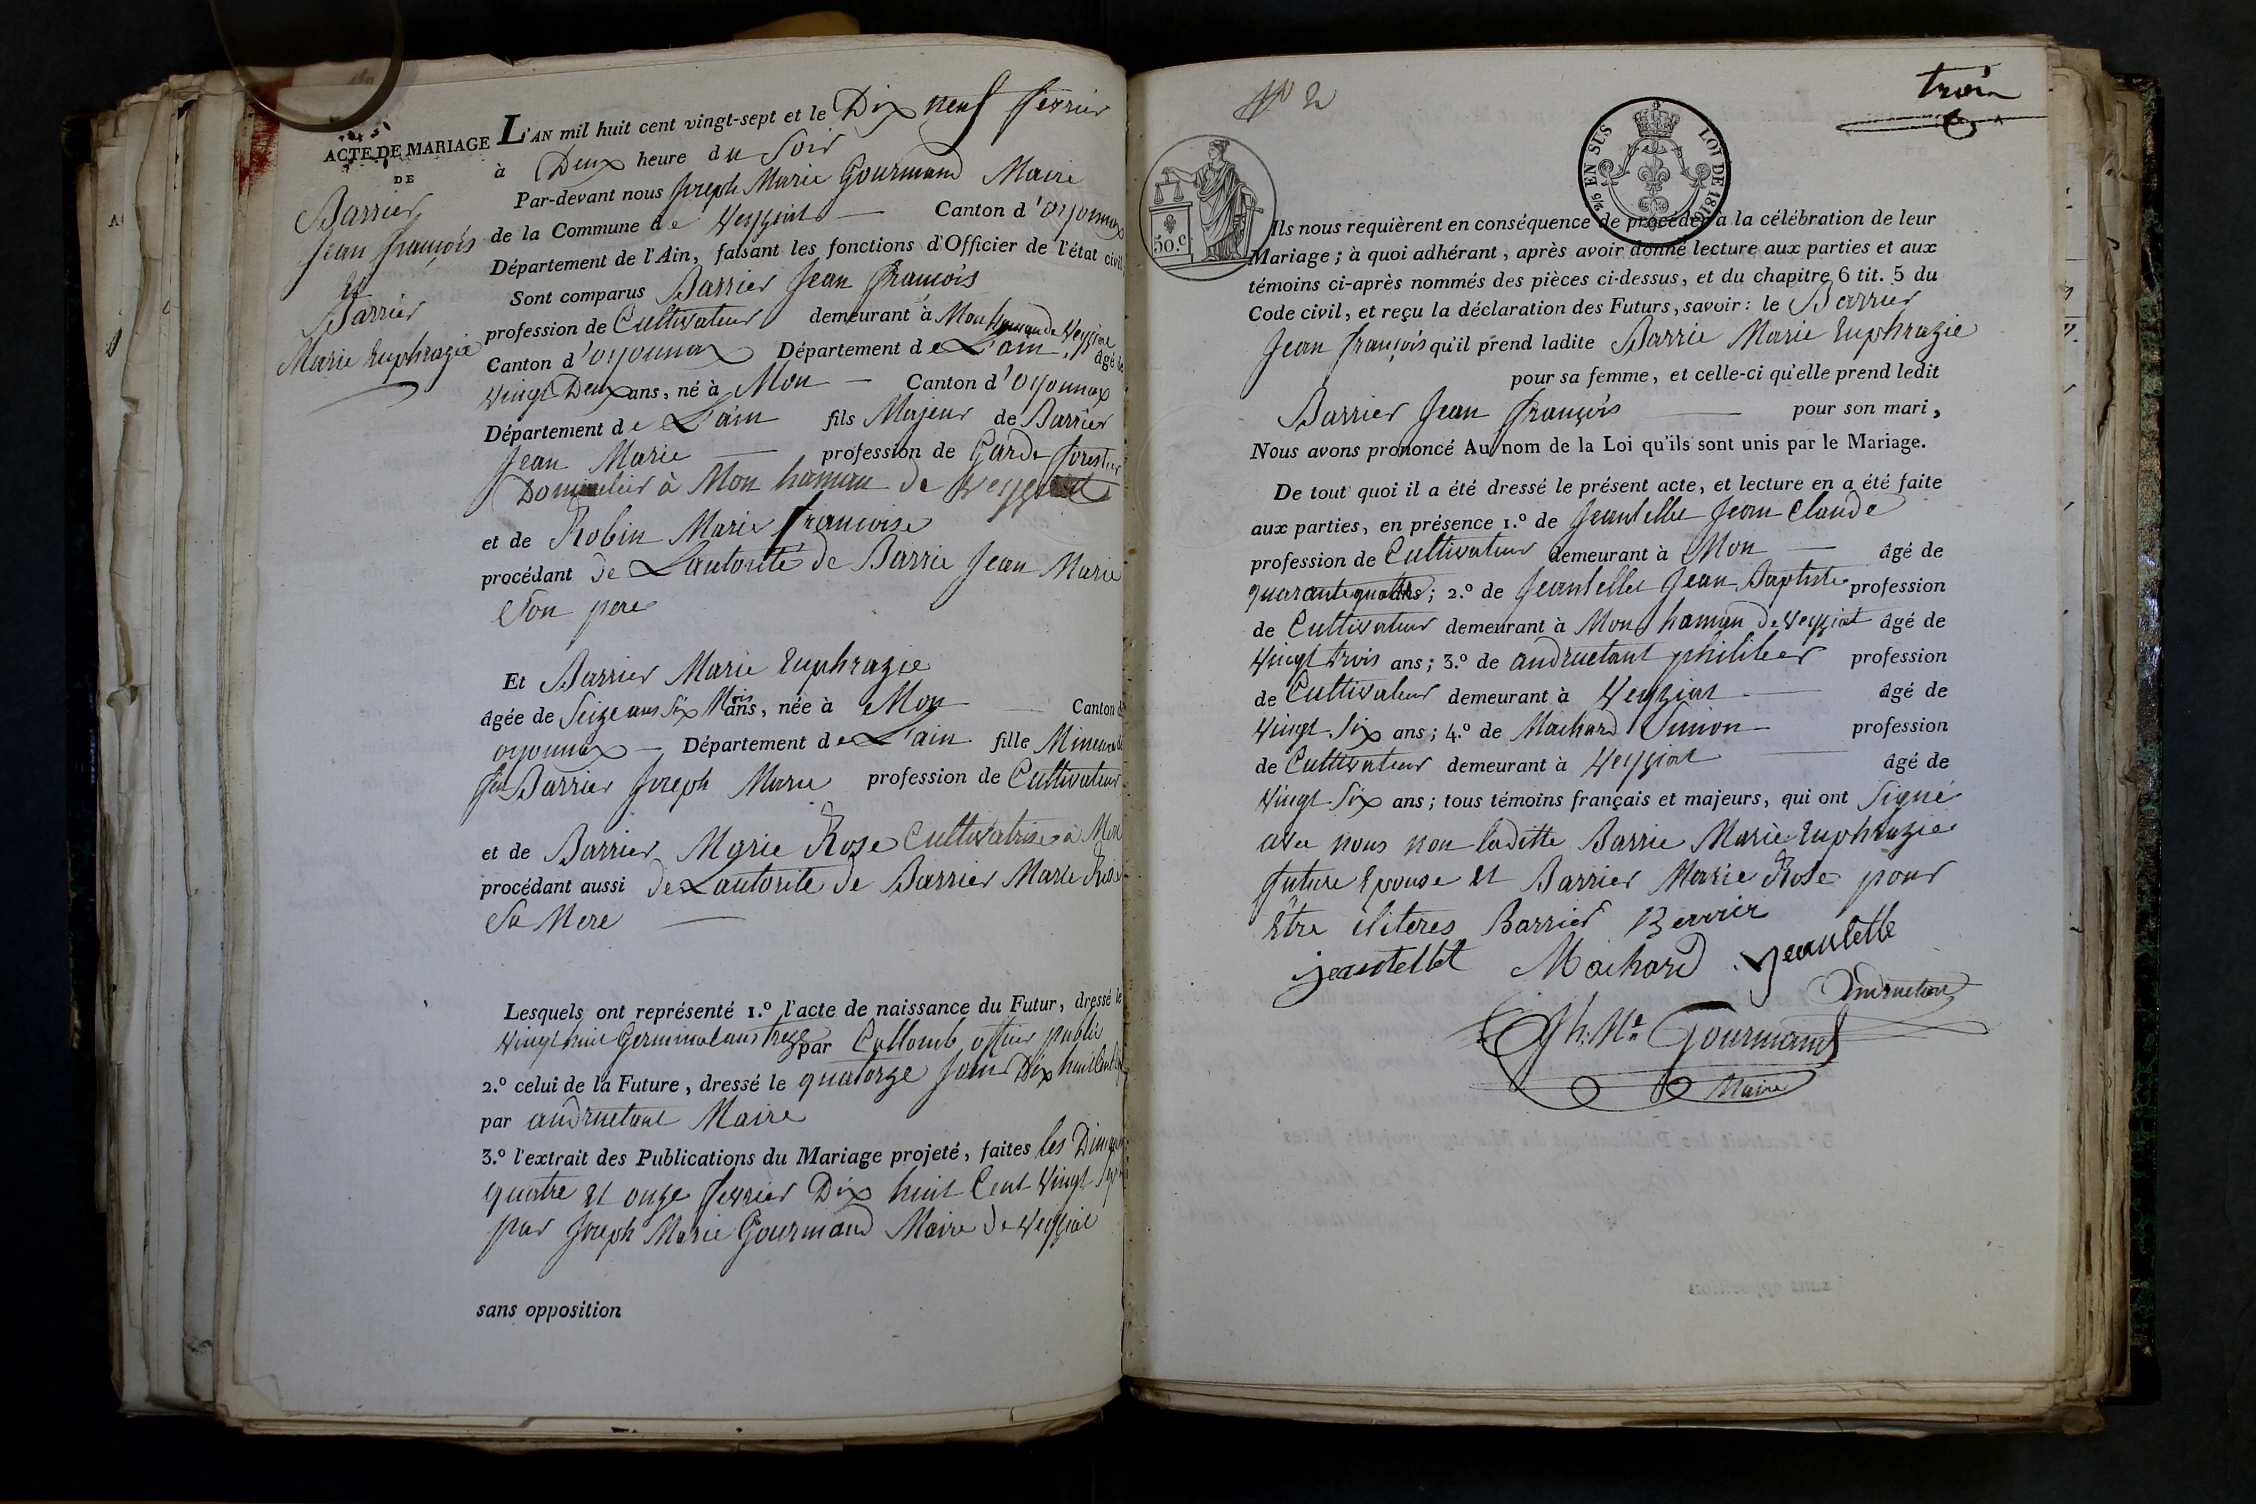 ACTE DE MARIAGE
DE
Barrier
Jean françois
Et
Barrier
Marie Euphrazie
L'AN mil huit cent vingt-sept et le Dix neuf fevrier
à Deux heure du Soir
Par-devant nous Joseph Marie Gourmand Maire
de la Commune de Veyziat Canton d'oyonnax
Département de l'Ain, faisant les fonctions d'Officier de l'état civil
Sont comparus Barrier Jean françois
profession de Cultivateur demeurant à Mon hamau de Veyziat
Canton d'oyonnax Département de L'ain, âgé de
Vingt Deux ans, né à Mon Canton d'oyonnax
Département de L'ain fils Majeur de Barrier
Jean Marie profession de Garde forestier
à Mon hamau de Veyziat
et de Robin Marie francoise
procédant de Lautorité de Barrie Jean Marie
Son pere
Et Barrier Marie Euphrazie
âgée de Seize ans Six Mois ans, née à Mon Canton d
oyonnax Département de L'ain fille Mineure de
feu Barrier Joseph Marie profession de Cultivateur
et de Barrier Marie Rose Cultivatrise à Mon
procédant aussi de Lautorité de Barrier Marie Rose
Sa Mere
Lesquels ont représenté 1.º l'acte de naissance du Futur, dressé le
Vingt huit Germinal ans treize par Collomb officier public
2.º celui de la Future, dressé le quatorze Dix huit Cent
par andruetant Maire
3.º l'extrait des Publications du Mariage projeté, faites les
quatre Et onze fevrier Dix huit Cent Vingt Sept
par Joseph Marie Gourmand Maire de Veyziat
sans opposition
Nº 2
trois
50.C
2/5 EN SUS
LOI DE 1816
Ils nous requièrent en conséquence de procéder à la célébration de leur
Mariage; à quoi adhérant, après avoir donné lecture aux parties et aux
témoins ci-après nommés des pièces ci-dessus, et du chapitre 6 tit. 5 du
Code civil, et reçu la déclaration des Futurs, savoir: le Barrier
Jean françois qu'il prend ladite Barrie Marie Euphrazie
pour sa femme, et celle-ci qu'elle prend ledit
Barrier Jean françois pour son mari,
Nous avons prononcé Au nom de la Loi qu'ils sont unis par le Mariage.
De tout quoi il a été dressé le présent acte, et lecture en a été faite
aux parties, en présence 1.º de Jeantellet Jean Claude
profession de Cultivateur demeurant à Mon âgé de
quarante quatre ans; 2.º de Jeantellet Jean Baptiste profession
de Cultivateur demeurant à Mon hamau de Veyziat âgé de
Vingt trois ans; 3.º de andruetant philiber profession
de Cultivateur demeurant à Veyziat âgé de
Vingt Six ans; 4.º de Machard Simon profession
de Cultivateur demeurant à Veyziat âgé de
Vingt Six ans; tous témoins français et majeurs, qui ont Signé
avec nous non laditte Barrie Marie Euphrazie
future Epouse Et Barrier Marie Rose pour
Etre iliteres Barrier Berrier
jeantellet Machard Jeantelle
Andruetan
Jh. Me Gourmand
Maire